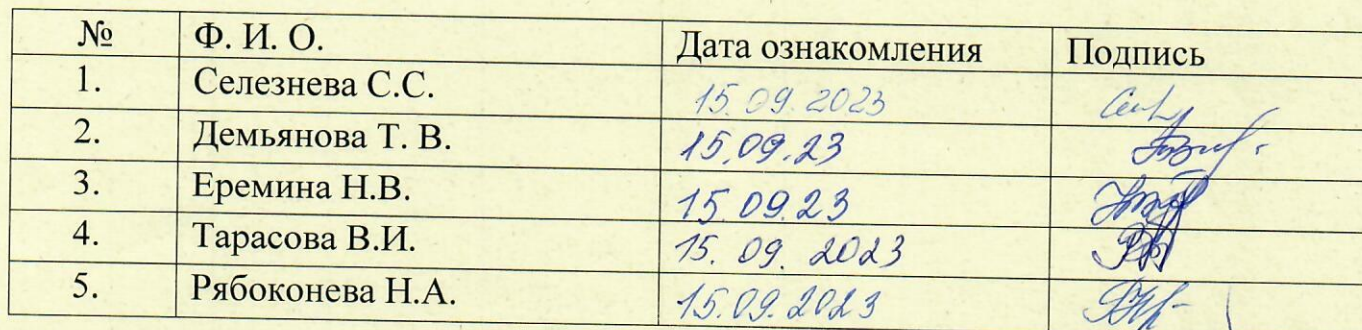 № Ф. И. О. Дата ознакомления Подпись
1. Селезнева С.С. 15.09.2023
2. Демьянова Т. В. 15.09.23
3. Еремина Н.В. 15.09.23
4. Тарасова В.И. 15. 09. 2023
5. Рябоконева Н.А. 15.09.2023